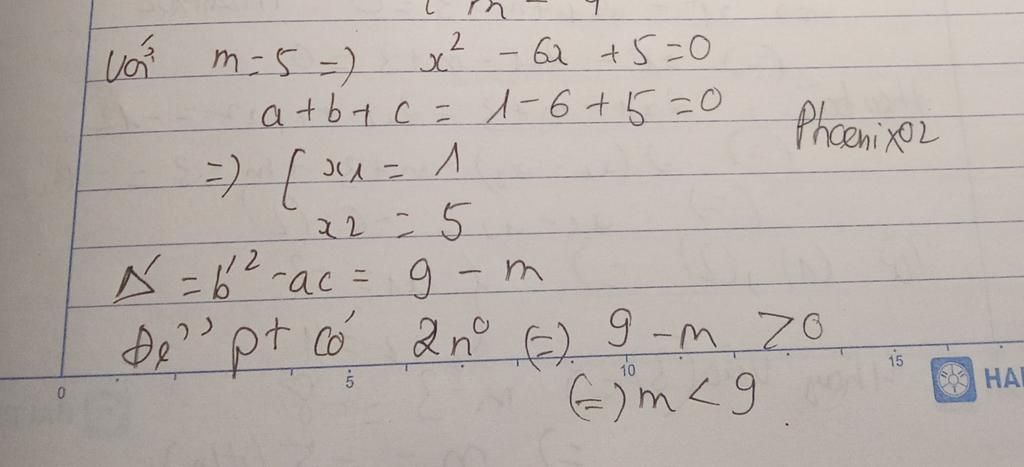 Với m = 5 => x² - 6x + 5 = 0
a + b + c = 1 - 6 + 5 = 0
Phoenix02
=> [ x1 = 1
x2 = 5
Δ' = b'² - ac = 9 - m
Để pt có 2n⁰ (=) 9 - m > 0
0 5 10 15 HA
(=) m < 9